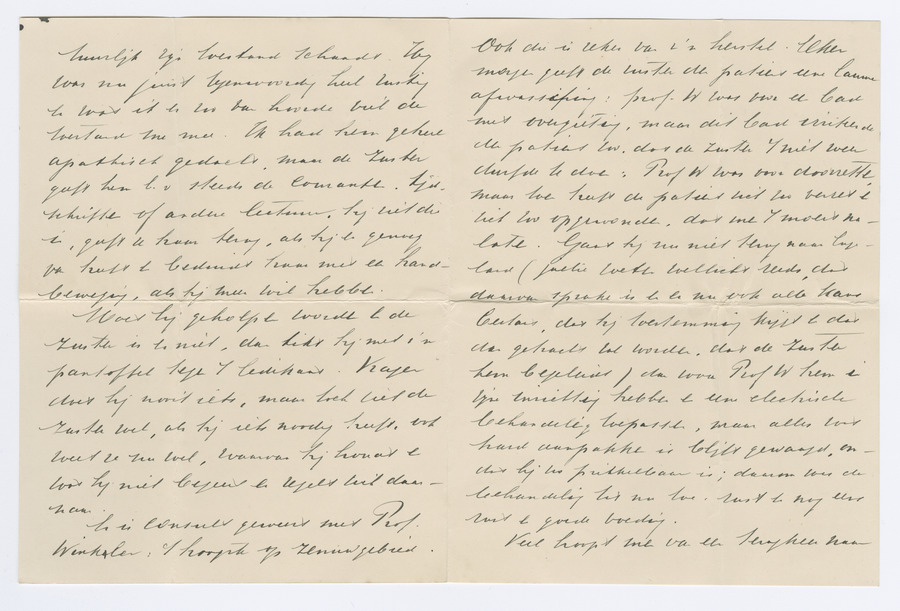 tuurlijk zijn toestand schaadt. Hij
was nu juist tegenwoordig heel rustig
en was it en van hoorde viel de
toestand me mee. Ik had hem geheel
apathisch gedacht, maar de Zuster
geeft hem b.v. steeds de Courante. tijd-
schrifte of andere lectuur, hij ziet die
in, geeft ze haar terug, als hij er genoeg
van heeft & beduidt haar met een hand-
beweging, als hij meer wil hebben.
Moet hij geholpen worden & de
Zuster is er niet, dan tikt hij met z'n
pantoffel tege 't ledikant. Vragen
doet hij nooit iets, maar toch ziet de
Zuster wel, als hij iets noodig heeft, ook
weet ze nu wel, waarvan hij houdt &
wat hij niet begeert en regelt zich daar-
naar.
Er is consult geweest met Prof.
Winkler, 't hoogste op zenuwgebied.
Ook die is zeker van z'n herstel. Elken
morgen geeft de zuster de patient een lauwe
afwassching; prof. W was voor een bad
met overgieting, maar dit bad
de patient zoo, dat de Zuster 't niet meer
durfde te doen; Prof W was voor doorzette,
maar toe heeft de patient zich zoo verzet &
zich zoo opgewonden, dat me 't moest na-
late. Gaat hij nu niet terug naar Enge-
land (jullie weten wellicht reeds, dat
daarvan sprake is en er nu ook alle kans
bestaat, dat hij toestemming krijgt & dat
dan getracht zal worden, dat de Zuster
hem begeleidt) dan wou Prof W hem in
zijn inrichting hebben & een electrische
behandeling toepassen, maar alles wat
hard aanpakken is blijft gewaagd, om-
dat hij zoo prikkelbaar is; daarom was de
behandeling tot nu toe: rust & nog eens
rust & goede voeding.
Veel hoopt men van een terugkeer naar